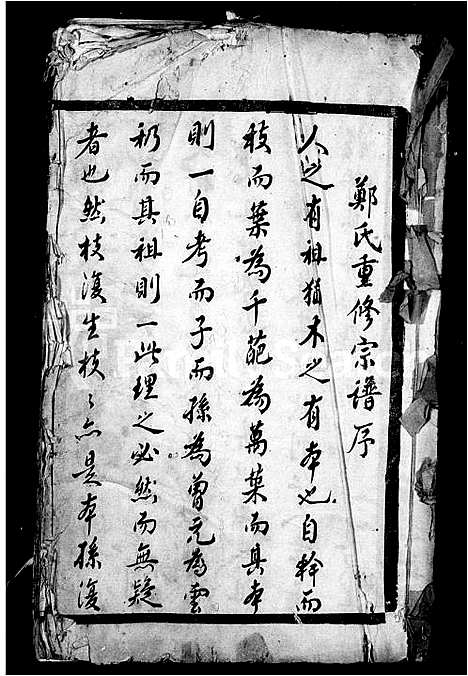 鄭氏重修宗譜序
人之有祖猶木之有本也自幹而
枝而葉為千葩為萬葉而其本
則一自考而子而孫為曾元為雲
礽而其祖則一此理之必然而無疑
者也然枝復生枝〻亦是本孫復